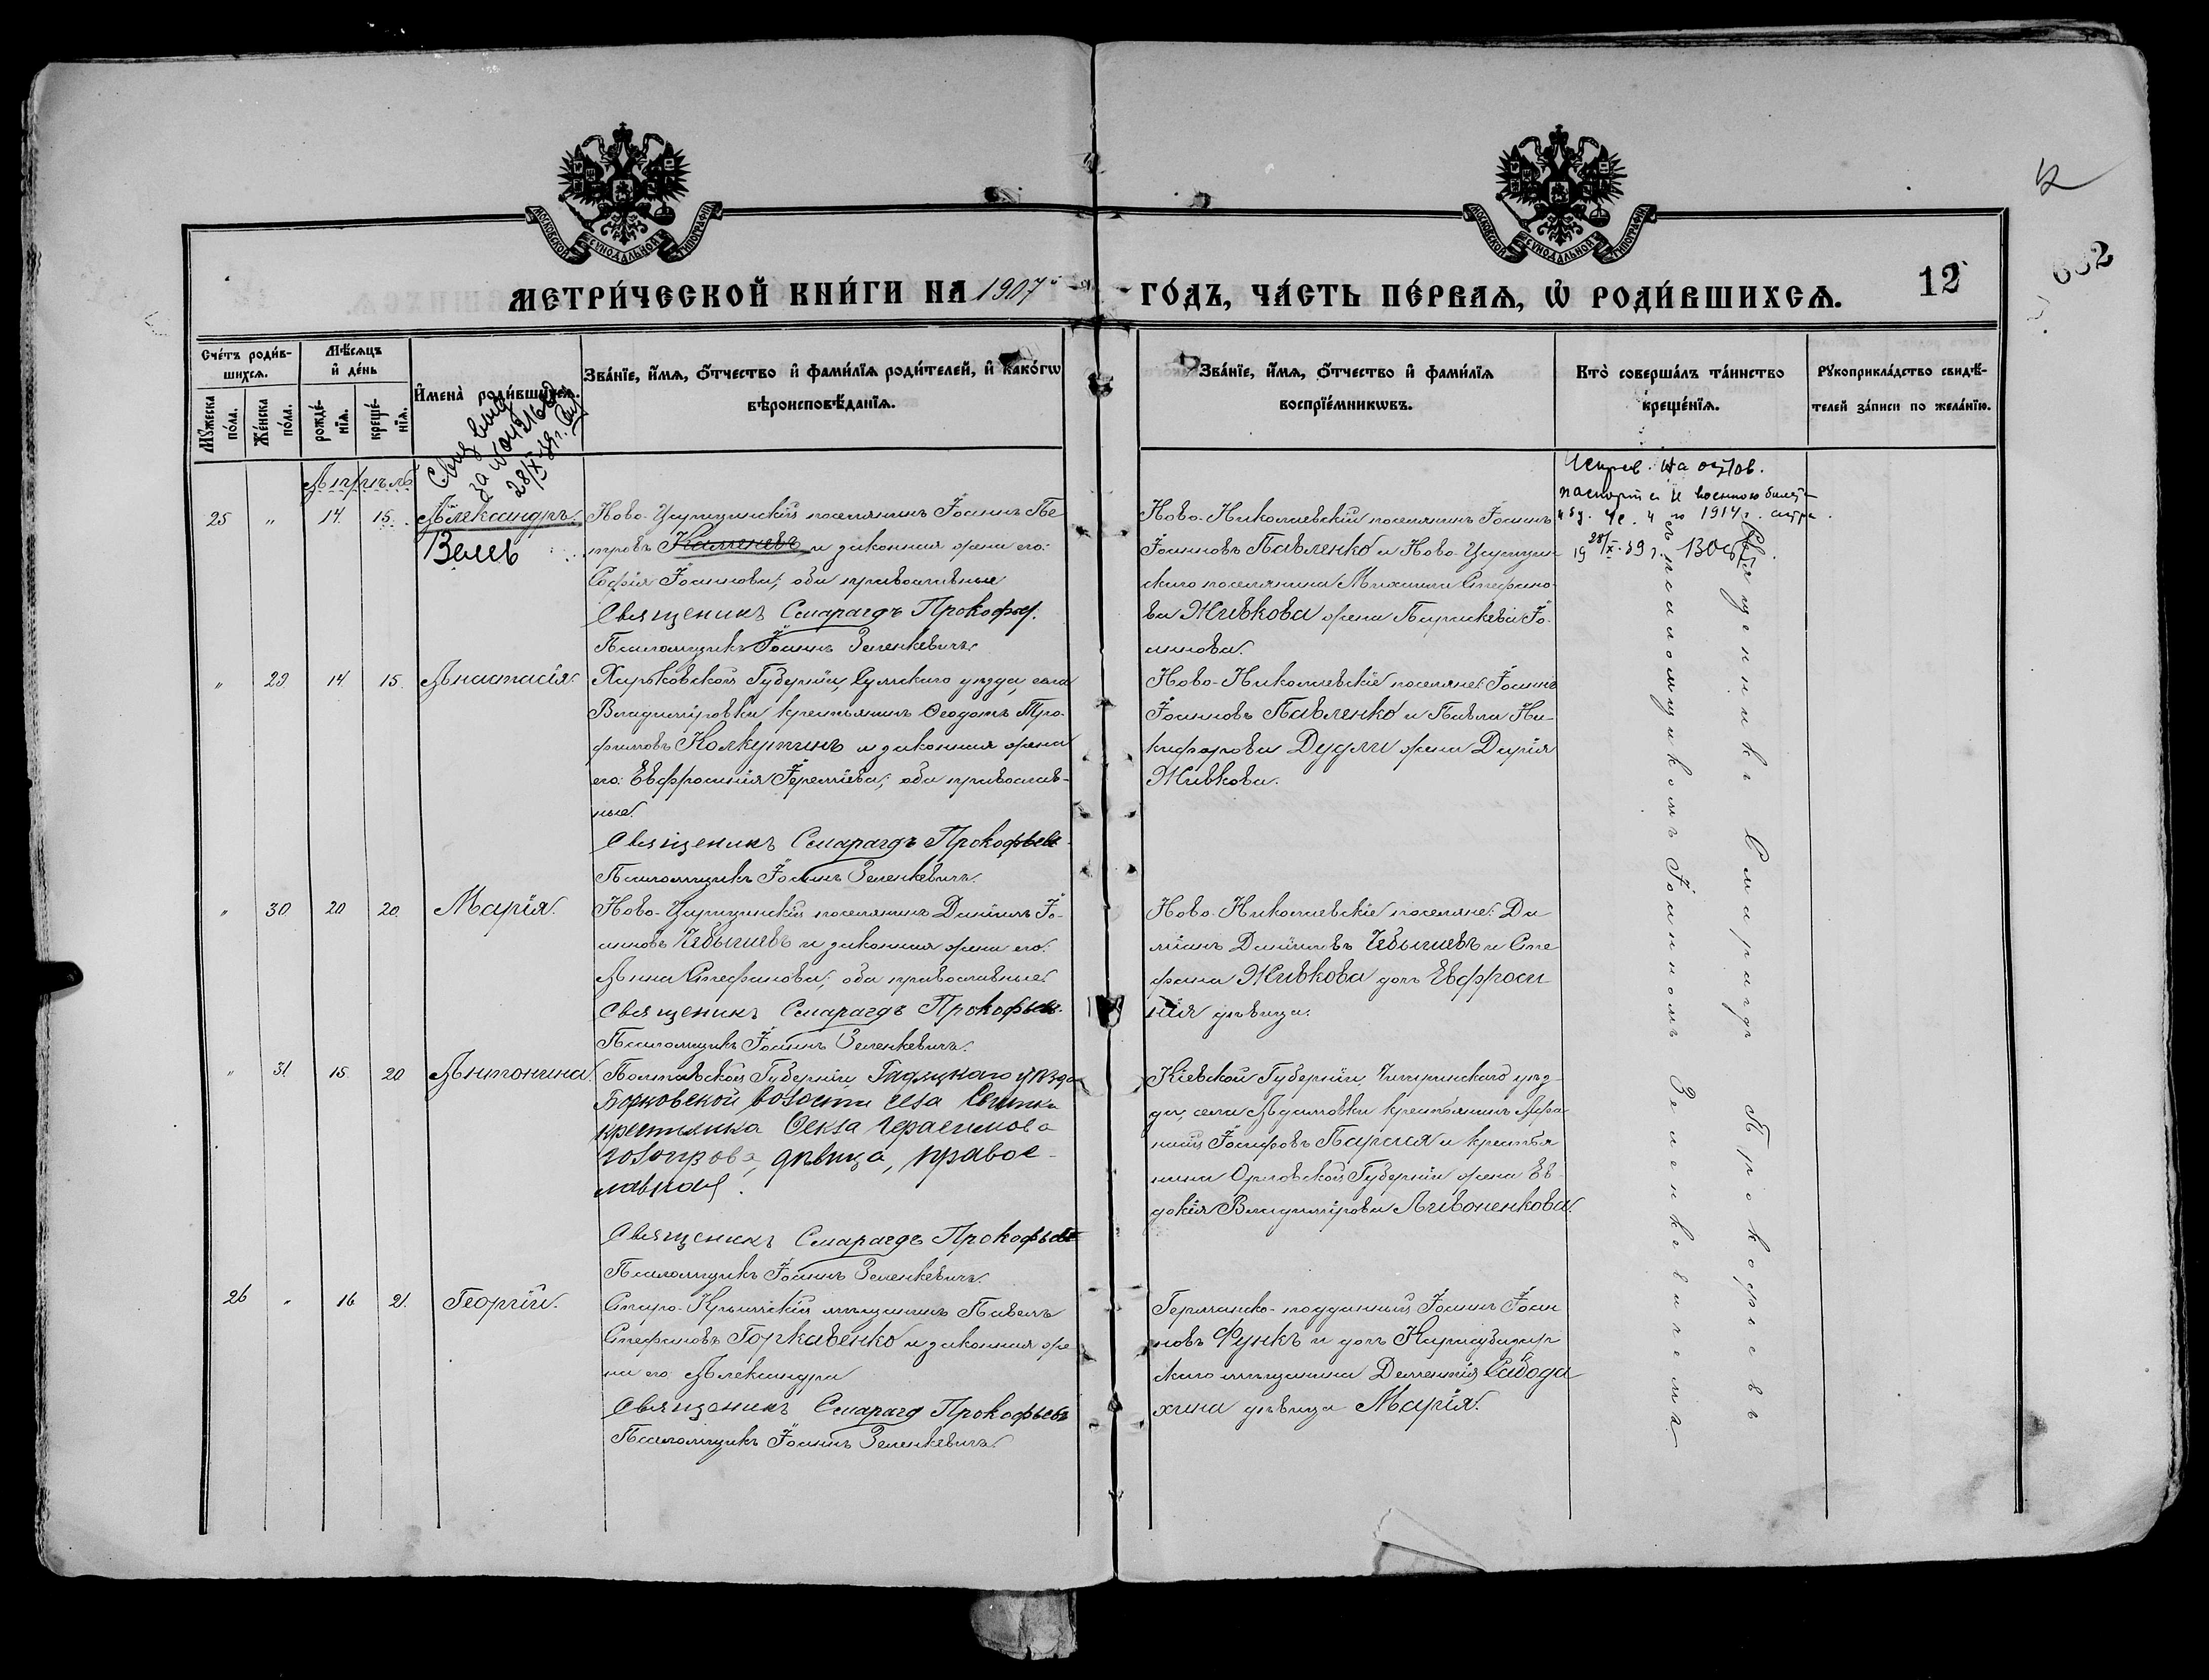 МОСКОВСКОЙ СѴНОДАЛЬНОЙ ТИПОГРАФІИ
МОСКОВСКОЙ СѴНОДАЛЬНОЙ ТИПОГРАФІИ
12
МЕТРИ́ЧЕСКОЙ КНИ́ГИ НА 1907
ГО́ДЪ, ЧА́СТЬ ПЕ́РВАѦ, Ѡ РОДИ́ВШИХСѦ.
Сче́тъ роди́в-
шихсѧ.
Мꙋжеска по́ла.
Же́нска по́ла.
Мѣ́сѧцъ и де́нь
рожде́-
нїѧ.
креще́-
нїѧ.
И҆мена̀ роди́вшихсѧ.
Зва́нїе, и҆́мѧ, ѻ҆́тчество и҆ фами́лїѧ роди́телей, и҆ како́гѡ
вѣроисповѣ́данїѧ.
Зва́нїе, и҆́мѧ, ѻ҆́тчество и҆ фами́лїѧ
воспрїе́мникѡвъ.
Кто̀ соверша́лъ та́инство
креще́нїѧ.
Рꙋкоприкла́дство свидѣ́-
телей за́писи по жела́нїю.
Апрѣль
25 " 14. 15. Александръ.
Велев
Ново-Царицинскій поселянинъ Іоаннъ Пе
тровъ Каменевъ и законная жена его:
Софія Іоаннова; оба православные
Священникъ Смарагдъ Прокофьев.
Псаломщикъ Іоаннъ Зеленкевичъ.
Ново-Николаевскій поселянинъ Іоаннъ
Іоанновъ Павленко и Ново-Царицин
скаго поселянина Михаила Стефано-
ва Живкова жена Параскева Іо-
аннова.
Исправ. на основ.
паспорта и военного билета
28/X 39 г.
" 29 14 15. Анастасія.
Харьковской Губерніи, Сумскаго уѣзда, села
Владиміровки крестьянинъ Ѳеодотъ Тро-
фимовъ Колкутинъ и законная жена
его: Евфросинія Іереміева; оба православ-
ные.
Священникъ Смарагдъ Прокофьевъ
Псаломщикъ Іоаннъ Зеленкевичъ.
Ново-Николаевскіе поселяне: Іоаннъ
Іоанновъ Павленко и Павла Ни-
кифорова Дудли жена Дарія
Живкова.
" 30 20 20. Марія.
Ново-Царицинскій поселянинъ Даніилъ Іо-
анновъ Чебышевъ и законная жена его:
Анна Стефанова; оба православные.
Священникъ Смарагдъ Прокофьевъ.
Псаломщикъ Іоаннъ Зеленкевичъ.
Ново-Николаевскіе поселяне: Да
міанъ Даніиловъ Чебышевъ и Сте
фана Живкова дочь Евфроси
нія дѣвица.
" 31. 15 20 Антонина.
Полтавской Губерніи, Гадяцкаго уѣзда
Борковской волости села
крестьянка Текла Герасимова
дѣвица, правос-
лавная.
Священникъ Смарагдъ Прокофьевъ
Псаломщикъ Іоаннъ Зеленкевичъ.
Кіевской Губерніи, Чигиринскаго уѣз-
да, села Адамовки крестьянинъ Афа
насій Іосифовъ и крестья
нина Орловской Губерніи жена Ев
докія Владимірова Ливоненкова.
26 " 16 21. Георгій.
Старо-Крымскій мѣщанинъ Павелъ
Стефановъ Горкавенко и законная же
на его Александра
Священникъ Смарагд Прокофьевъ
Псаломщикъ Іоаннъ Зеленкевичъ
Германско-подданный Іоаннъ Іоан
новъ Функъ и дочь Карасубазар
скаго мѣщанина Дементія Сивода
хина дѣвица Марія.
Священникъ Смарагдъ Прокофьевъ
съ псаломщикомъ Іоанномъ Зеленкевичемъ